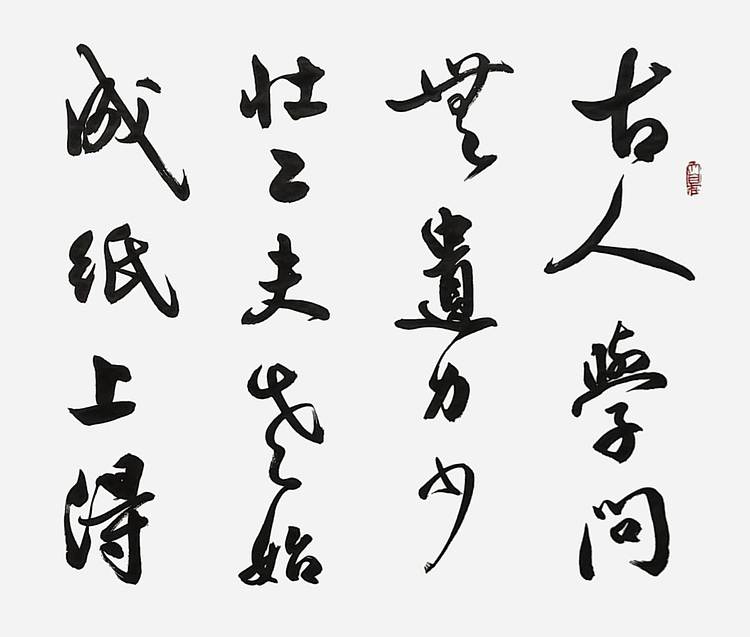 古人學問
無遺力少
壯工夫老始
成紙上得